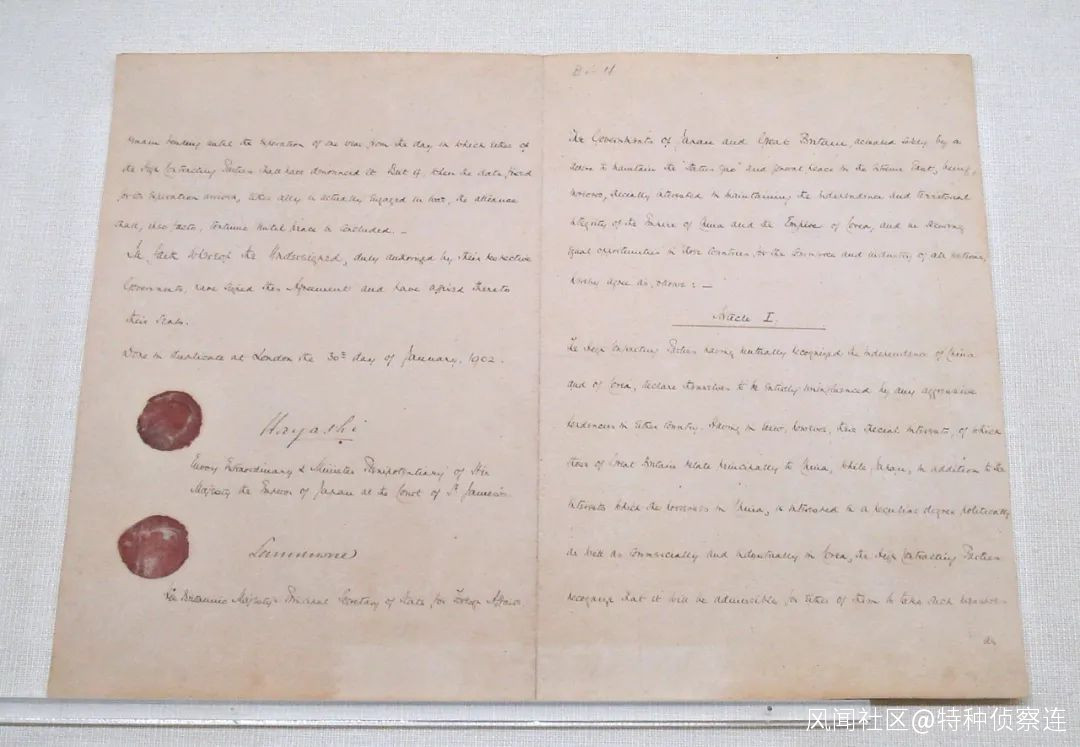 remain binding until the expiration of one year from the day on which either of
the High Contracting Parties shall have denounced it. But if, when the date fixed
for its expiration arrives, either ally is actually engaged in war, the alliance
shall, ipso facto, continue until peace is concluded. —
In faith whereof the Undersigned, duly authorized by their respective
Governments, have signed this Agreement and have affixed thereto
their Seals.
Done in duplicate at London the 30th day of January, 1902.
Hayashi
Envoy Extraordinary & Minister Plenipotentiary of His
Majesty the Emperor of Japan at the Court of St James's
Lansdowne
His Britannic Majesty's Principal Secretary of State for Foreign Affairs
The Governments of Japan and Great Britain, actuated solely by a
desire to maintain the "status quo" and general peace in the Extreme East, being,
moreover, specially interested in maintaining the independence and territorial
integrity of the Empire of China and the Empire of Corea, and in securing
equal opportunities in those countries for the commerce and industry of all nations,
hereby agree as follows: —
Article I.
The High Contracting Parties having mutually recognized the independence of China
and of Corea, declare themselves to be entirely uninfluenced by any aggressive
tendencies in either country. Having in view, however, their special interests, of which
those of Great Britain relate principally to China, while Japan, in addition to the
interests which she possesses in China, is interested in a peculiar degree politically
as well as commercially and industrially in Corea, the High Contracting Parties
recognize that it will be admissible for either of them to take such measures
as
风闻社区@特种侦察连